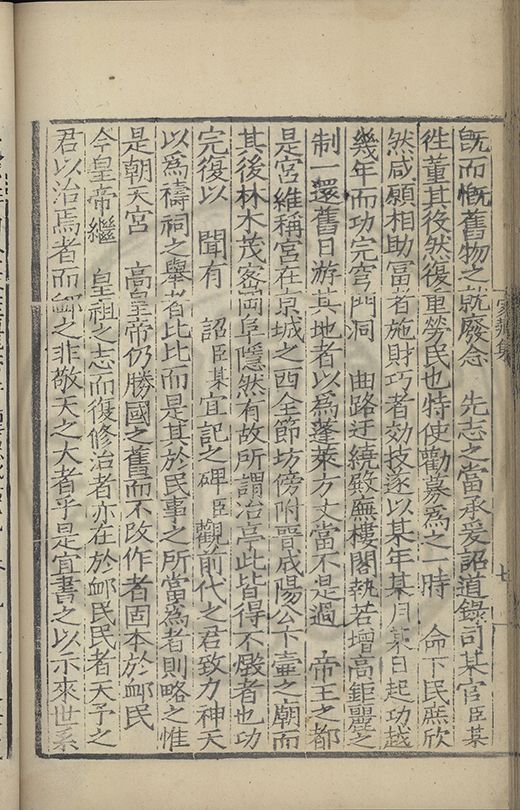 旣而慨舊物之就廢念　先志之當承爰詔道錄司某官臣某
徃董其役然復重勞民也特使勸募爲之一時　命下民庶欣
然咸願相助冨者施財巧者効技遂以某年某月某日起功越
幾年而功完穹門洞　曲路迂繞殿廡樓閣執若增高鉅麗之
制一還舊日游其地者以爲蓬萊方丈當不是過　帝王之都
是宮維稱宮在京城之西全節坊傍附晉成陽公卞壷之廟而
其後林木茂宻岡阜隱然有故所謂冶亭此皆得不燬者也功
完復以　聞有　詔臣某宜記之碑臣觀前代之君致力神天
以爲禱祠之舉者比比而是其於民事之所當爲者則略之惟
是朝天宮　高皇帝仍勝國之舊而不改作者固本於䘏民
今皇帝繼　皇祖之志而復修治者亦在於䘏民民者天予之
君以治焉者而䘏之非敬天之大者乎是宜書之以示來世系
家藏集
七